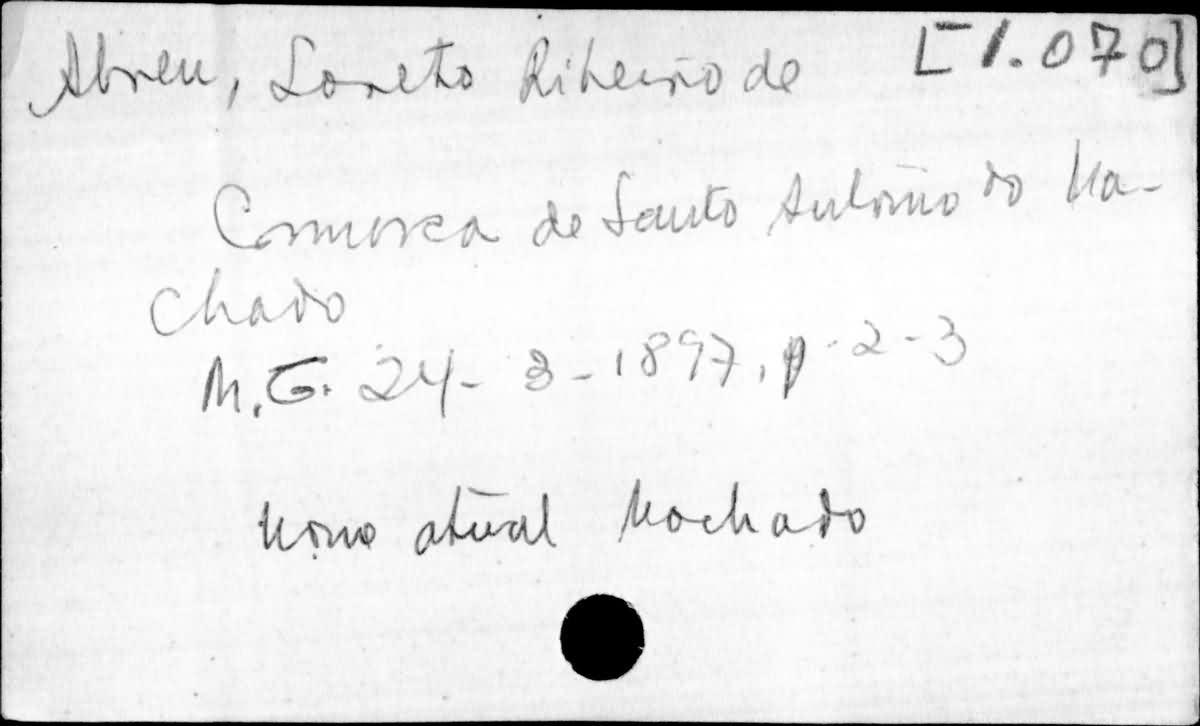 Abreu, Loreto Ribeiro de [1.070]
Comarca de Santo Antonio do Ma-
chado
M.G. 24-3-1897, p-2-3
Nome atual Machado